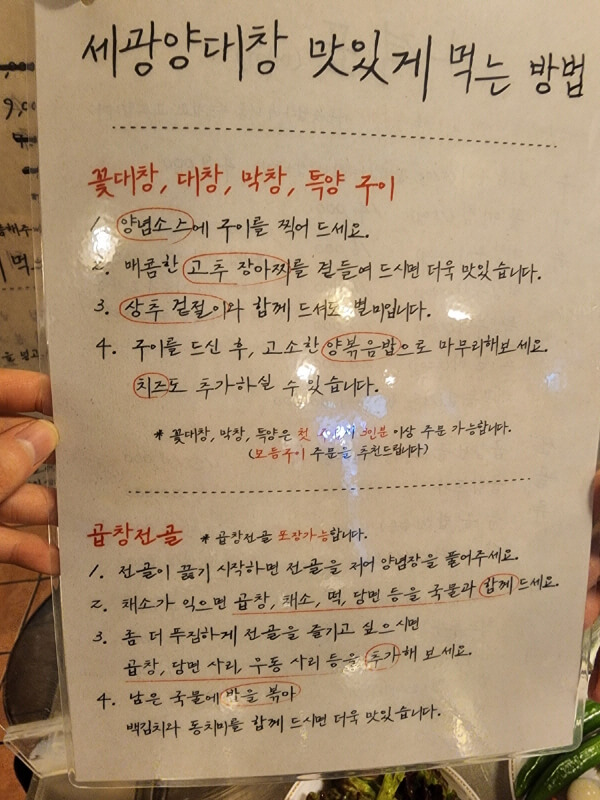 세광양대창 맛있게 먹는 방법
꽃대창, 대창, 막창, 특양 구이
1. 양념소스에 구이를 찍어 드세요.
2. 매콤한 고추 장아찌를 곁들여 드시면 더욱 맛있습니다.
3. 상추 겉절이와 함께 드셔도 별미입니다.
4. 구이를 드신 후, 고소한 양볶음밥으로 마무리해보세요.
치즈도 추가하실 수 있습니다.
* 꽃대창, 막창, 특양은 첫 3인분 이상 주문 가능합니다.
(모듬구이 주문을 추천드립니다)
곱창전골 * 곱창전골 포장가능합니다.
1. 전골이 끓기 시작하면 전골을 저어 양념장을 풀어주세요.
2. 채소가 익으면 곱창, 채소, 떡, 당면 등을 국물과 함께 드세요.
3. 좀 더 푸짐하게 전골을 즐기고 싶으시면
곱창, 당면 사리, 우동 사리 등을 추가해 보세요.
4. 남은 국물에 밥을 볶아
백김치와 동치미를 함께 드시면 더욱 맛있습니다.